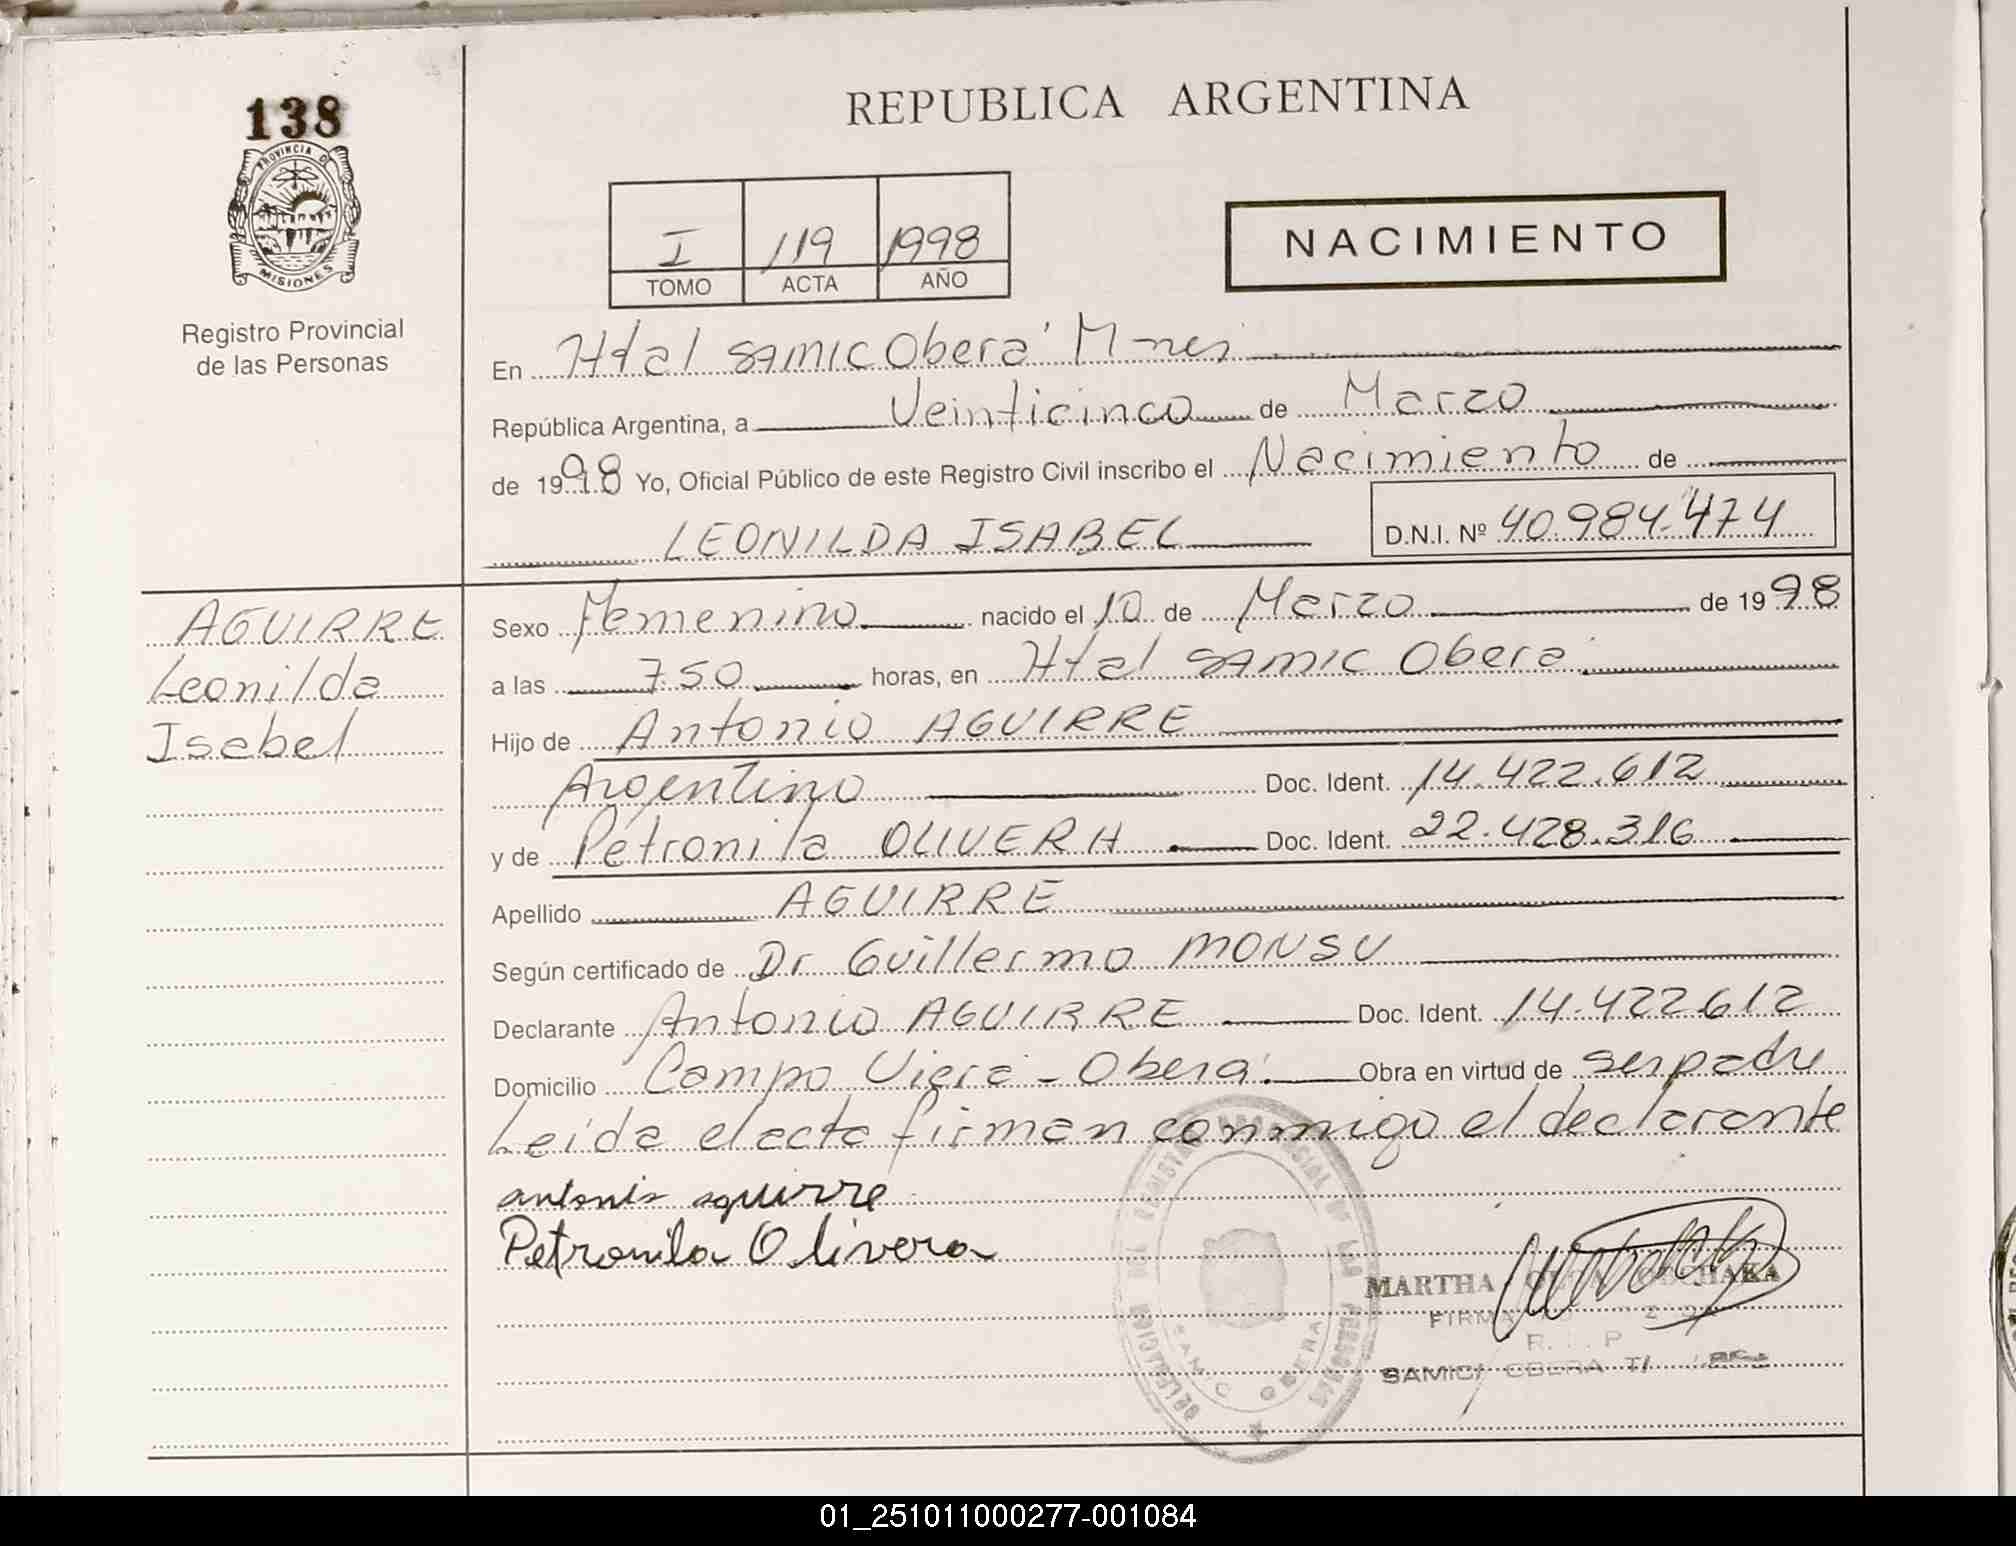 138
PROVINCIA DE
MISIONES
Registro Provincial
de las Personas
REPUBLICA ARGENTINA
I 119 1998
TOMO ACTA AÑO
NACIMIENTO
En Htal SAMIC Oberá Mnes
República Argentina, a Veinticinco de Marzo
de 1998 Yo, Oficial Público de este Registro Civil inscribo el Nacimiento de
LEONILDA ISABEL D.N.I. Nº 40.984.474
AGUIRRE
Leonilda
Isabel
Sexo Femenino nacido el 10 de Marzo de 1998
a las 750 horas, en Htal SAMIC Oberá
Hijo de Antonio AGUIRRE
Argentino Doc. Ident. 14.422.612
y de Petronila OLIVERA Doc. Ident. 22.428.316
Apellido AGUIRRE
Según certificado de Dr Guillermo MONSU
Declarante Antonio AGUIRRE Doc. Ident. 14.422612
Domicilio Campo Viera - Oberá Obra en virtud de ser padre
Leída el acta firman conmigo el declarante
antonio aguirre
Petronila Olivera
MARTHA
SAMIC OBERA
01_251011000277-001084